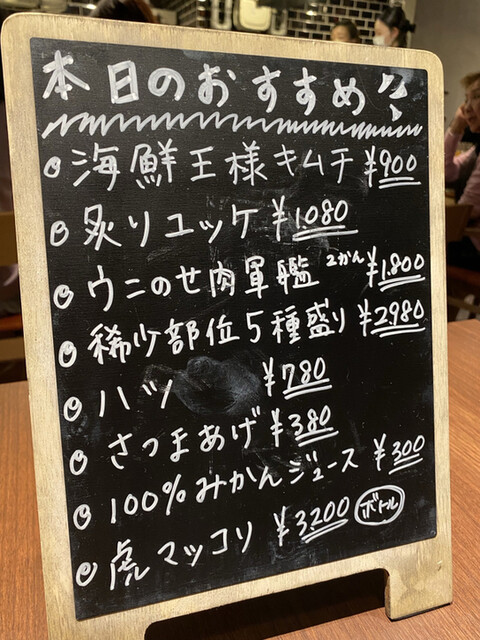 本日のおすすめ!!
海鮮王様キムチ ¥900
炙りユッケ ¥1.080
ウニのせ肉軍艦 2かん ¥1.800
稀少部位5種盛り ¥2980
ハツ ¥780
さつまあげ ¥380
100%みかんジュース ¥300
虎マッコリ ¥3200 ボトル